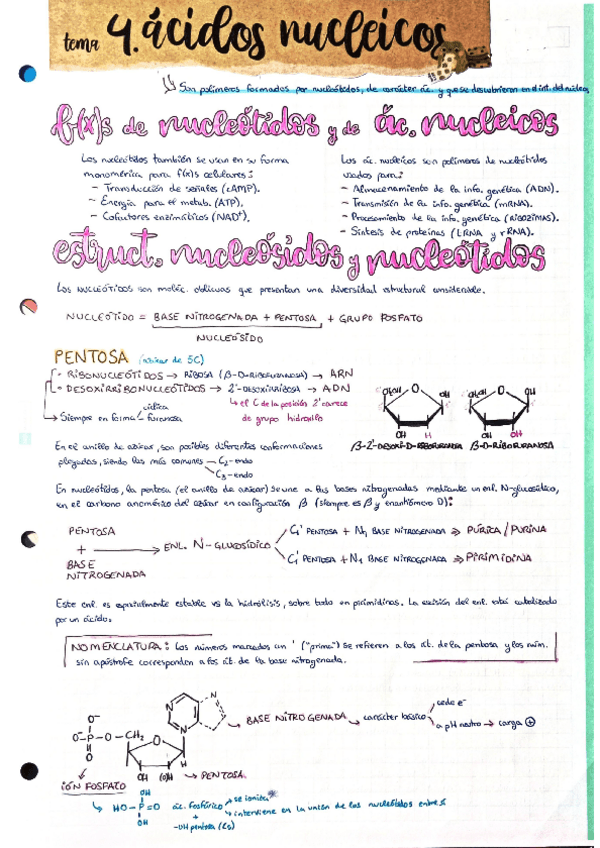 tema 4. ácidos nucleicos
Son polímeros formados por nucleótidos, de carácter ác. y que se descubrieron en dist. del núcleo
f(x)s de nucleótidos y de ác. nucleicos
Los nucleótidos también se usan en su forma
monomérica para f(x)s celulares:
- Transducción de señales (cAMP).
- Energía para el metab. (ATP).
- Cofactores enzimáticos (NAD+).
Los ác. nucleicos son polímeros de nucleótidos
usados para:
- Almacenamiento de la info. genética (ADN).
- Transmisión de la info. genética (mRNA).
- Procesamiento de la info. genética (RIBOZIMAS).
- Síntesis de proteínas (tRNA y rRNA).
estruct. nucleósidos y nucleótidos
Los NUCLEÓTIDOS son moléc. que presentan una diversidad estructural considerable.
NUCLEÓTIDO = BASE NITROGENADA + PENTOSA + GRUPO FOSFATO
NUCLEÓSIDO
PENTOSA (azúcar de 5C)
· RIBONUCLEÓTIDOS → RIBOSA (β-D-RIBOFURANOSA) → ARN
· DESOXIRRIBONUCLEÓTIDOS → 2'-DESOXIRRIBOSA → ADN
↳ el C de la posición 2' carece
de grupo hidroxilo
→ Siempre en forma cíclica
furanosa
OHCH2 O OH
OH H
β-2'-DESOXI-D-RIBOFURANOSA
OHCH2 O OH
OH OH
β-D-RIBOFURANOSA
En el anillo de azúcar, son posibles diferentes conformaciones
plegadas, siendo las más comunes C2-endo
C3-endo
En nucleótidos, la pentosa (el anillo de azúcar) se une a las bases nitrogenadas mediante un enl. N-glucosídico,
en el carbono anomérico del azúcar en configuración β (siempre es β y enantiómero D):
PENTOSA
+
BASE
NITROGENADA
→ ENL. N-GLUCOSÍDICO
C1' PENTOSA + N9 BASE NITROGENADA ⇒ PÚRICA / PURINA
C1' PENTOSA + N1 BASE NITROGENADA ⇒ PIRIMIDINA
Este enl. es especialmente estable vs la hidrólisis, sobre todo en pirimidinas. La escisión del enl. está catalizada
por un ácido.
NOMENCLATURA: Los números marcados con ' ("prima") se refieren a los át. de la pentosa y los núm.
sin apóstrofe corresponden a los át. de la base nitrogenada.
O- O- P O O CH2 O
N N N N
H
OH (O)H
→ BASE NITROGENADA → carácter básico
cede e-
a pH neutro → carga +
→ PENTOSA
IÓN FOSFATO
OH
HO-P=O
OH
ác. fosfórico → se ioniza
→ interviene en la unión de los nucleótidos entre sí
+
-OH pentosa (C5)